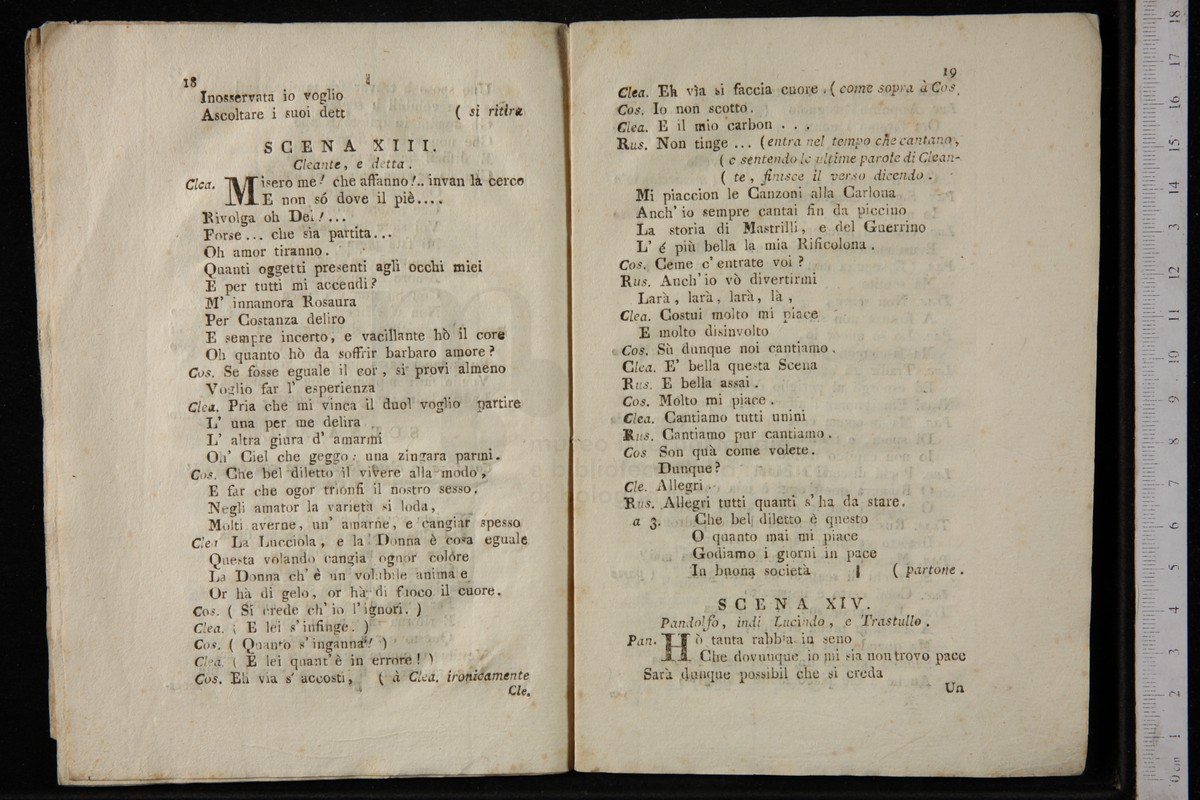 18
Inosservata io voglio
Ascoltare i suoi dett ( si ritira
SCENA XIII.
Cleante, e detta.
Clea. Misero me! che affanno!.. invan la cerco
E non só dove il piè....
Rivolga oh Dei!...
Forse... che sia partita...
Oh amor tiranno.
Quanti oggetti presenti agli occhi miei
E per tutti mi accendi?
M' innamora Rosaura
Per Costanza deliro
E sempre incerto, e vacillante hò il core
Oh quanto hò da soffrir barbaro amore?
Cos. Se fosse eguale il cor, si provi almeno
Voglio far l' esperienza
Clea. Pria che mi vinca il duol voglio partire
L' una per me delira
L' altra giura d' amarmi
Oh' Ciel che geggo: una zingara parmi.
Cos. Che bel diletto il vivere alla modo,
E far che ogor trionfi il nostro sesso.
Negli amator la varietà si loda,
Molti averne, un' amarne, e cangiar spesso
Clea La Lucciola, e la Donna è cosa eguale
Questa volando cangia ognor colore
La Donna ch' è un volubile anima e
Or hà di gelo, or hà di fioco il cuore.
Cos. ( Si crede ch' io l'ignori. )
Clea. ( E lei s'infinge. )
Cos. ( Quanto s'inganna! )
Clea. ( E lei quant' è in errore! )
Cos. Eh via s' accosti, ( à Clea. ironicamente
Cle.
19
Clea. Eh via si faccia cuore. ( come sopra à Cos.
Cos. Io non scotto.
Clea. E il mio carbon . . .
Rus. Non tinge ... (entra nel tempo che cantano,
( e sentendo le ultime parole di Clean-
( te, finisce il verso dicendo.
Mi piaccion le Canzoni alla Carlona
Anch' io sempre cantai fin da piccino
La storia di Mastrilli, e del Guerrino
L' é più bella la mia Rificolona.
Cos. Ceme c' entrate voi?
Rus. Anch' io vò divertirmi
Larà, larà, larà, là,
Clea. Costui molto mi piace
E molto disinvolto
Cos. Sù dunque noi cantiamo.
Clea. E' bella questa Scena
Rus. E bella assai.
Cos. Molto mi piace.
Clea. Cantiamo tutti unini
Rus. Cantiamo pur cantiamo.
Cos Son quà come volete.
Dunque?
Cle. Allegri.
Rus. Allegri tutti quanti s' ha da stare.
a 3. Che bel diletto è questo
O quanto mai mi piace
Godiamo i giorni in pace
In buona società ( partone.
SCENA XIV.
Pandolfo, indi Lucindo, e Trastullo.
Pan. Hò tanta rabbia in seno
Che dovunque io mi sia non trovo pace
Sarà dunque possibil che si creda
Un